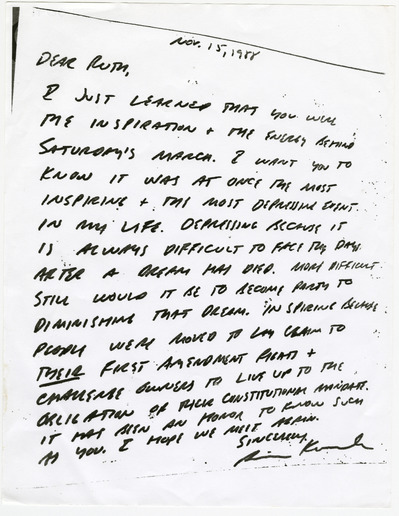 Nov. 15, 1988
DEAR RUTH,
I JUST LEARNED THAT YOU WERE
THE INSPIRATION + THE ENERGY BEHIND
SATURDAY'S MARCH. I WANT YOU TO
KNOW IT WAS AT ONCE THE MOST
INSPIRING + THE MOST DEPRESSING EVENT
IN MY LIFE. DEPRESSING BECAUSE IT
IS ALWAYS DIFFICULT TO FACE THE DAYS
AFTER A DREAM HAS DIED. MORE DIFFICULT
STILL WOULD IT BE TO BECOME PARTY TO
DIMINISHING THAT DREAM. INSPIRING BECAUSE
PEOPLE WERE MOVED TO LAY CLAIM TO
THEIR FIRST AMENDMENT RIGHTS +
CHALLENGE OWNERS TO LIVE UP TO THE
OBLIGATION OF THEIR CONSTITUTIONAL MANDATE.
IT HAS BEEN AN HONOR TO KNOW SUCH
AS YOU. I HOPE WE MEET AGAIN.
SINCERELY,